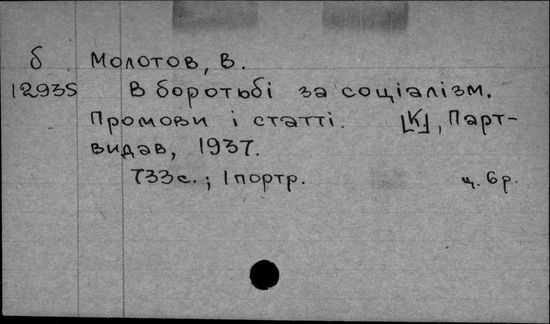 б Молотов, В.
12935 В боротьбі за соціалізм.
Промови і статті. [К], Парт-
видав, 1937.
733с.; 1 портр. ц. 6р.